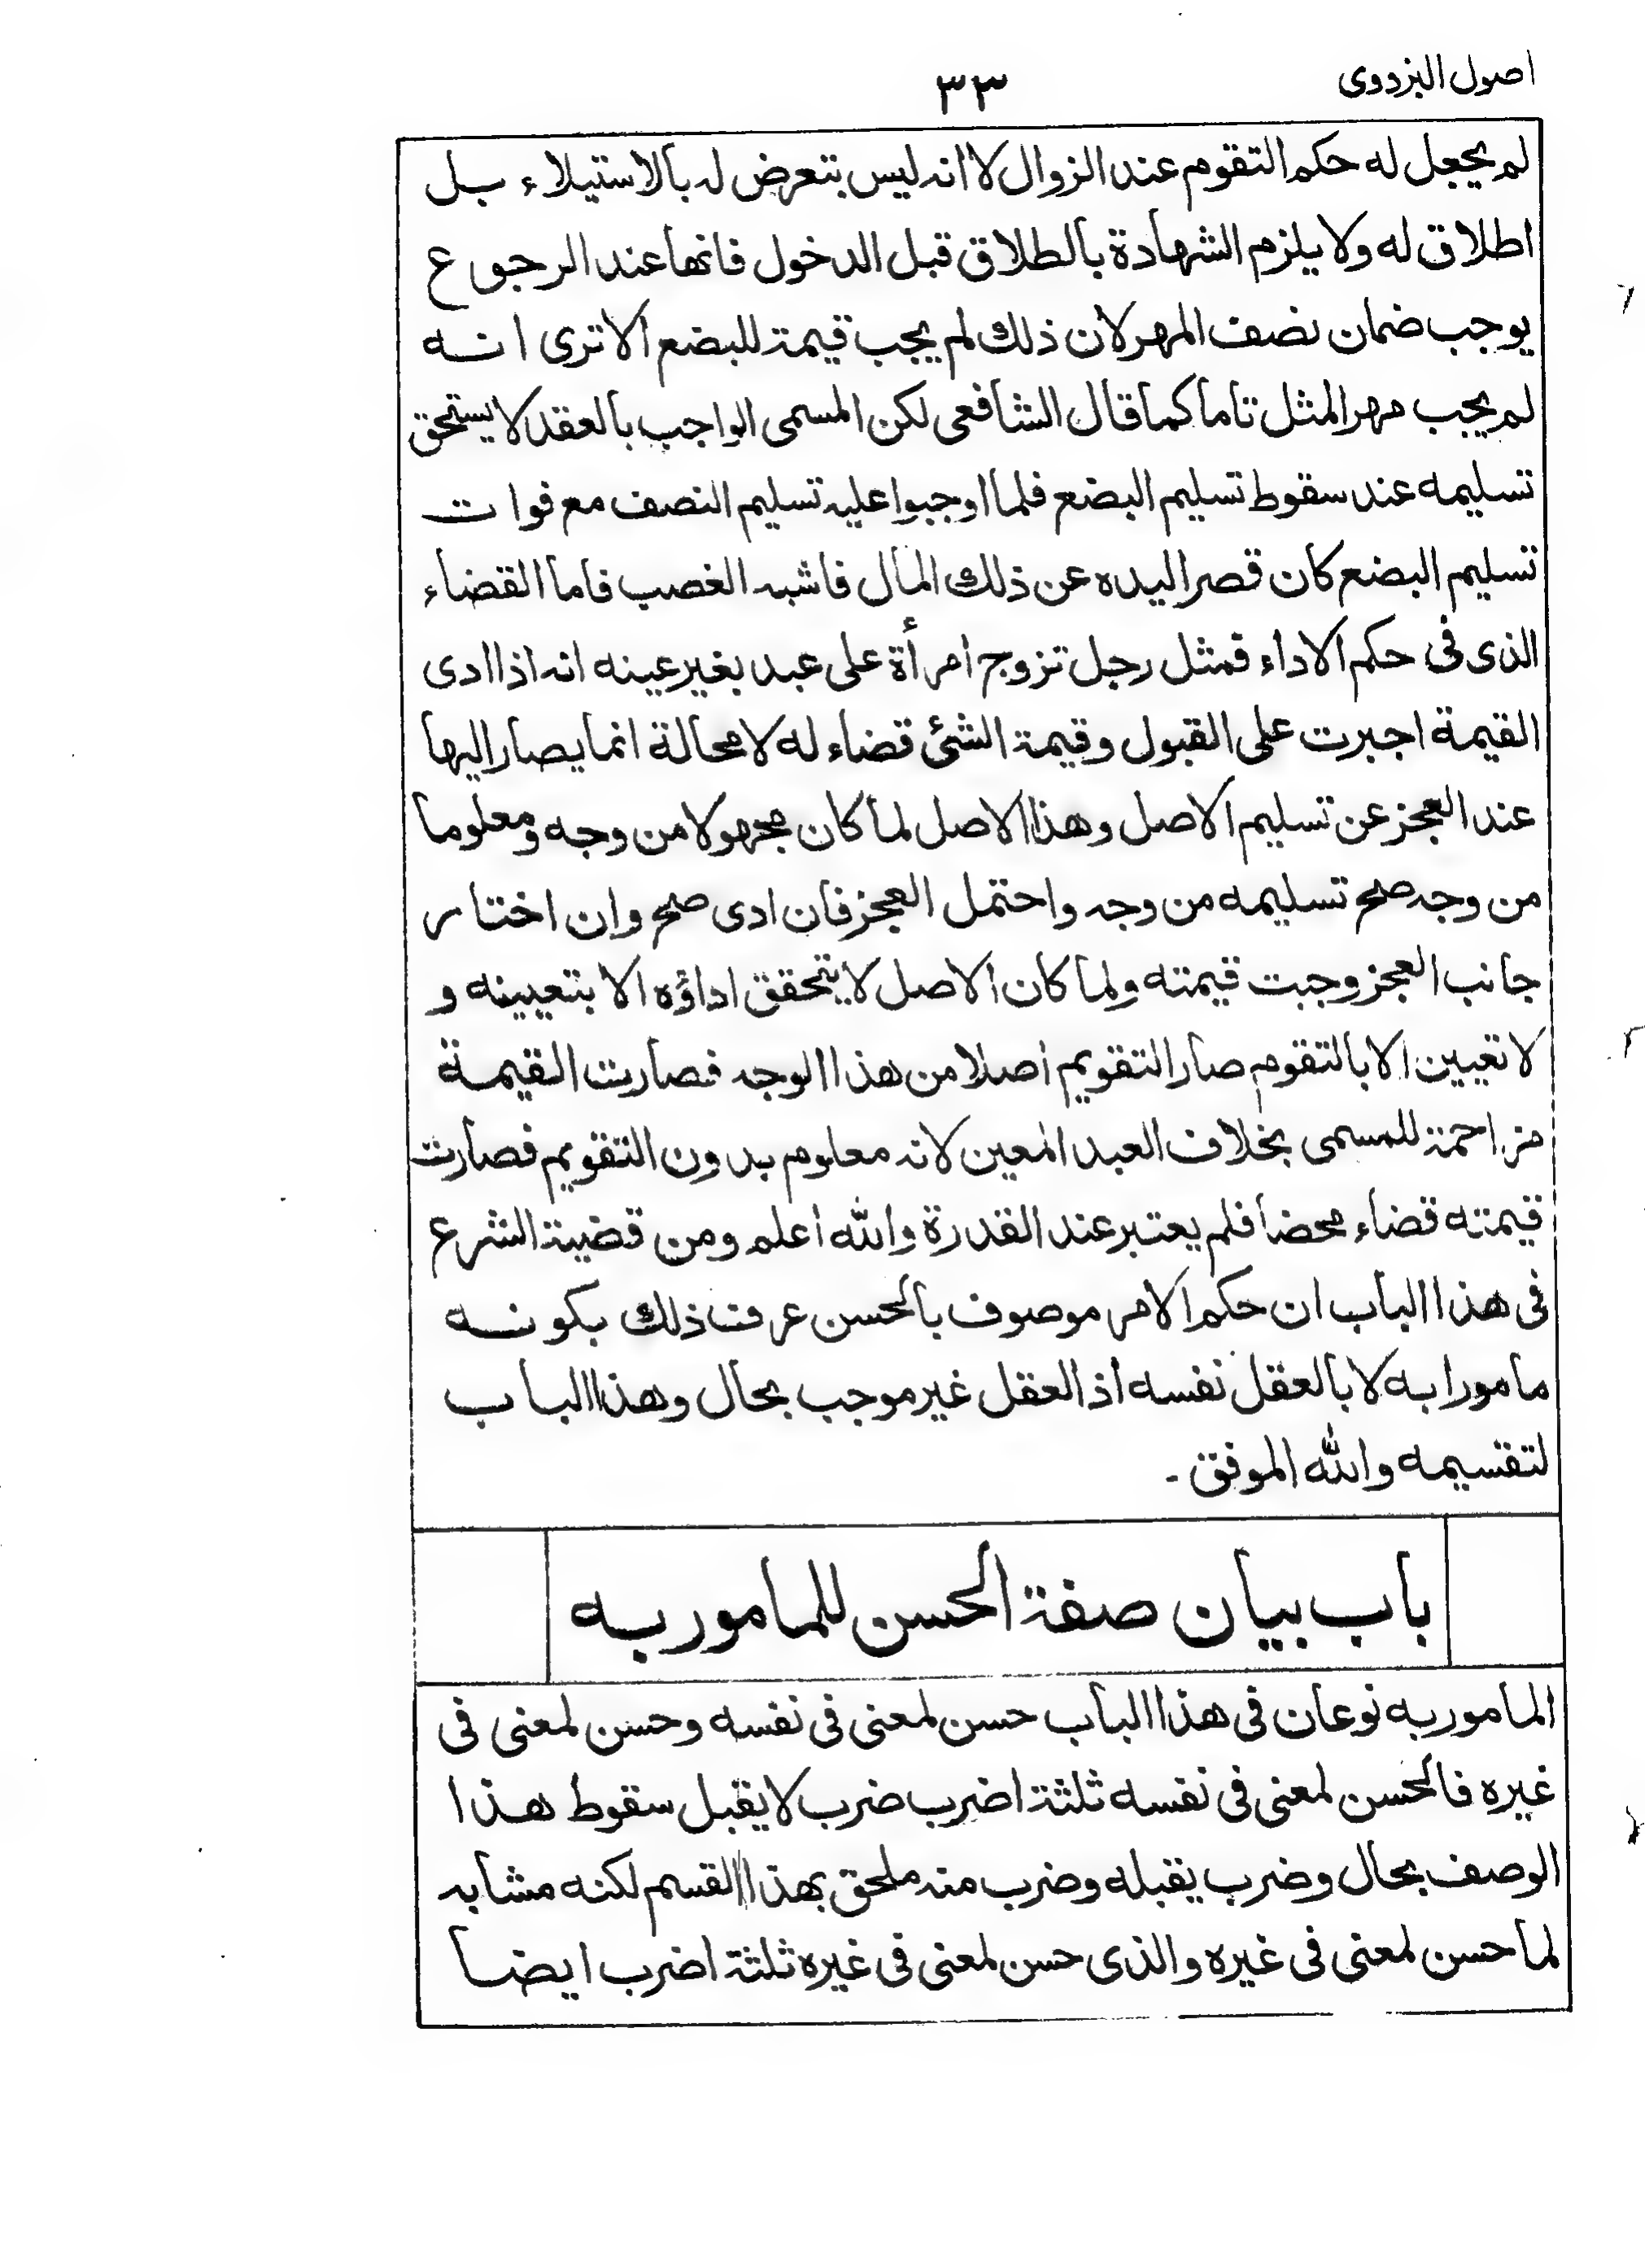 اصول البزدوى
٣٣
لم يجعل له حكم التقوم عند الزوال لا انه ليس بتعرض له بالاستيلاء بل
اطلاق له ولا يلزم الشهادة بالطلاق قبل الدخول فانها عند الرجوع
يوجب ضمان نصف المهر لان ذلك لم يجب قيمة للبضع الا ترى انه
لم يجب مهر المثل تاما كما قال الشافعى لكن المسمى الواجب بالعقد لا يستحق
تسليمه عند سقوط تسليم البضع فلما اوجبوا عليه تسليم النصف مع فوات
تسليم البضع كان قصرا ليده عن ذلك المال فاشبه الغصب فاما القضاء
الذى فى حكم الاداء فمثل رجل تزوج امرأة على عبد بغير عينه انه اذا ادى
القيمة اجبرت على القبول وقيمة الشئ قضاء له لا محالة انما يصار اليها
عند العجز عن تسليم الاصل وهذا الاصل لما كان مجهولا من وجه ومعلوما
من وجه صح تسليمه من وجه واحتمل العجز فان ادى صح وان اختار
جانب العجز وجبت قيمته ولما كان الاصل لا يتحقق اداؤه الا بتعيينه و
لا تعيين الا بالتقوم صار التقويم اصلا من هذا الوجه فصارت القيمة
مزاحمة للمسمى بخلاف العبد المعين لانه معلوم بدون التقويم فصارت
قيمته قضاء محضا فلم يعتبر عند القدرة والله اعلم ومن قضية الشرع
فى هذا الباب ان حكم الامر موصوف بالحسن عرف ذلك بكونه
مامورا به لا بالعقل نفسه اذ العقل غير موجب بحال وهذا الباب
لتقسيمه والله الموفق -
باب بيان صفة الحسن للمامور به
المامور به نوعان فى هذا الباب حسن لمعنى فى نفسه وحسن لمعنى فى
غيره فالحسن لمعنى فى نفسه ثلثة اضرب ضرب لا يقبل سقوط هذا
الوصف بحال وضرب يقبله وضرب منه ملحق بهذا القسم لكنه مشابه
لما حسن لمعنى فى غيره والذى حسن لمعنى فى غيره ثلثة اضرب ايضا